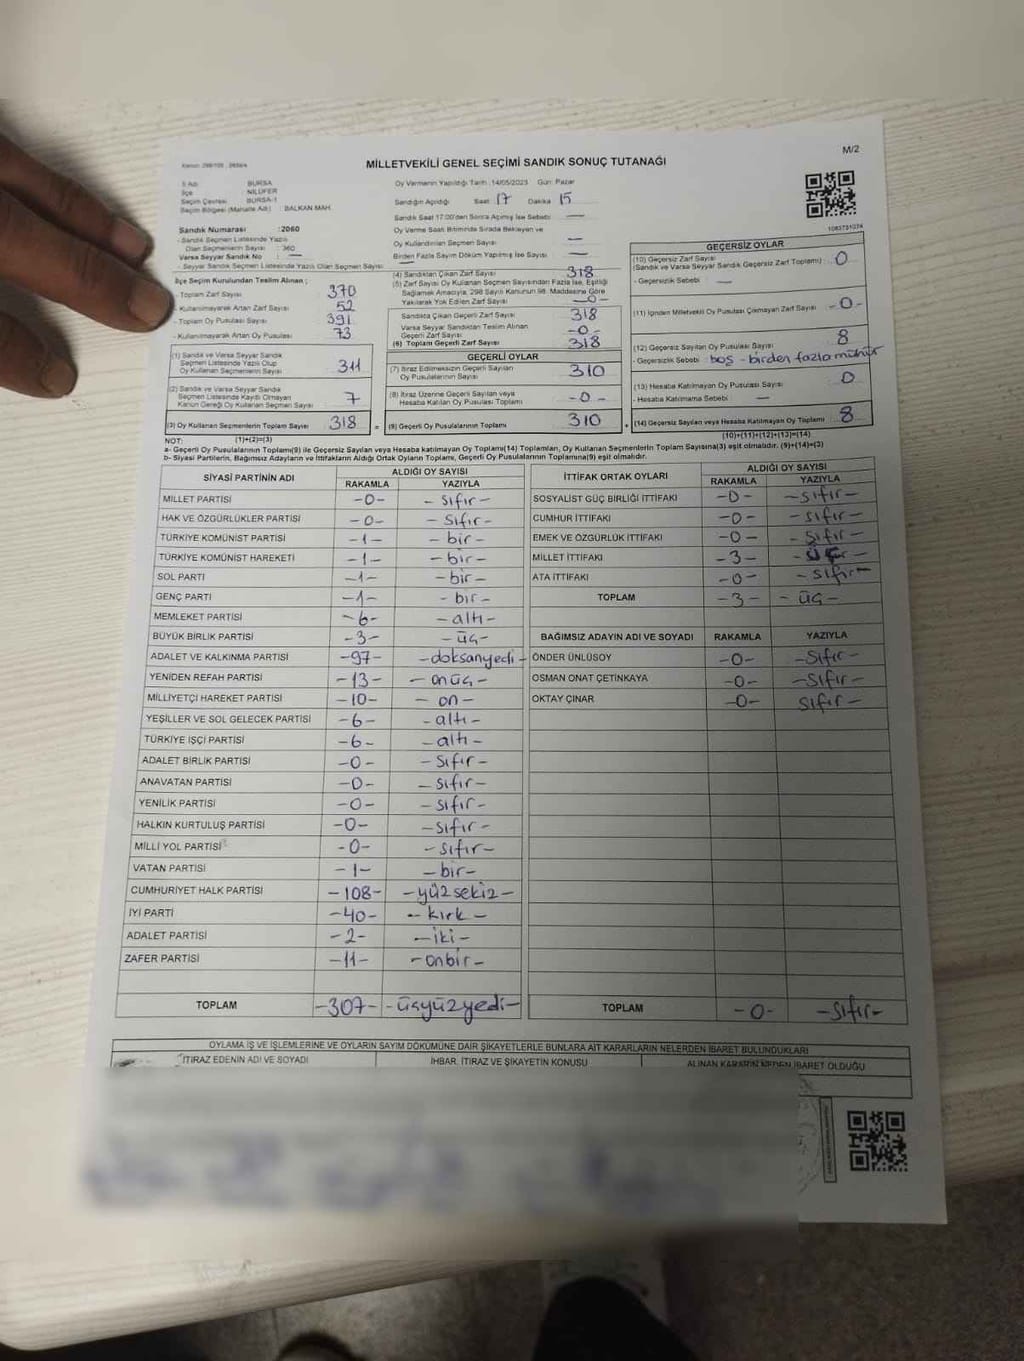 MİLLETVEKİLİ GENEL SEÇİMİ SANDIK SONUÇ TUTANAĞI
M/2
İl Adı BURSA
İlçe NİLÜFER
Seçim Çevresi BURSA-1
Seçim Bölgesi (Mahalle Adı) : BALKAN MAH.
Oy Vermenin Yapıldığı Tarih :14/05/2023 Gün: Pazar
Sandığın Açıldığı Saat 17 Dakika 15
Sandık Saat 17:00'den Sonra Açılmış İse Sebebi —
Sandık Numarası : 2060
- Sandık Seçmen Listesinde Yazılı
Olan Seçmenlerin Sayısı : 360
Varsa Seyyar Sandık No : —
- Seyyar Sandık Seçmen Listesinde Yazılı Olan Seçmen Sayısı
Oy Verme Saati Bitiminde Sırada Bekleyen ve
Oy Kullandırılan Seçmen Sayısı —
Birden Fazla Sayım Döküm Yapılmış İse Sayısı —
İlçe Seçim Kurulundan Teslim Alınan ;
- Toplam Zarf Sayısı 370
- Kullanılmayarak Artan Zarf Sayısı 52
- Toplam Oy Pusulası Sayısı 391
- Kullanılmayarak Artan Oy Pusulası 73
(1) Sandık ve Varsa Seyyar Sandık
Seçmen Listesinde Yazılı Olup
Oy Kullanan Seçmenlerin Sayısı 311
(2) Sandık ve Varsa Seyyar Sandık
Seçmen Listesinde Kaydı Olmayan
Kanun Gereği Oy Kullanan Seçmen Sayısı 7
(3) Oy Kullanan Seçmenlerin Toplam Sayısı 318 =
(1)+(2)=(3)
(4) Sandıktan Çıkan Zarf Sayısı 318
(5) Zarf Sayısı Oy Kullanan Seçmen Sayısından Fazla İse, Eşitliği
Sağlamak Amacıyla, 298 Sayılı Kanunun 98. Maddesine Göre
Yakılarak Yok Edilen Zarf Sayısı -0-
Sandıkta Çıkan Geçerli Zarf Sayısı 318
Varsa Seyyar Sandıktan Teslim Alınan
Geçerli Zarf Sayısı -0-
(6) Toplam Geçerli Zarf Sayısı 318
GEÇERLİ OYLAR
(7) İtiraz Edilmeksizin Geçerli Sayılan
Oy Pusulalarının Sayısı 310
(8) İtiraz Üzerine Geçerli Sayılan veya
Hesaba Katılan Oy Pusulası Toplamı -0-
(9) Geçerli Oy Pusulalarının Toplamı 310 +
1083731034
GEÇERSİZ OYLAR
(10) Geçersiz Zarf Sayısı
(Sandık ve Varsa Seyyar Sandık Geçersiz Zarf Toplamı) : 0
- Geçersizlik Sebebi —
(11) İçinden Milletvekili Oy Pusulası Çıkmayan Zarf Sayısı -0-
(12) Geçersiz Sayılan Oy Pusulası Sayısı 8
- Geçersizlik Sebebi boş - birden fazla mühür
(13) Hesaba Katılmayan Oy Pusulası Sayısı 0
- Hesaba Katılmama Sebebi —
(14) Geçersiz Sayılan veya Hesaba Katılmayan Oy Toplamı 8
(10)+(11)+(12)+(13)=(14)
NOT:
a- Geçerli Oy Pusulalarının Toplamı(9) ile Geçersiz Sayılan veya Hesaba katılmayan Oy Toplamı(14) Toplamları, Oy Kullanan Seçmenlerin Toplam Sayısına(3) eşit olmalıdır. (9)+(14)=(3)
b- Siyasi Partilerin, Bağımsız Adayların ve İttifakların Aldığı Ortak Oyların Toplamı, Geçerli Oy Pusulalarının Toplamına(9) eşit olmalıdır.
SİYASİ PARTİNİN ADI ALDIĞI OY SAYISI
RAKAMLA YAZIYLA
MİLLET PARTİSİ -0- - sıfır -
HAK VE ÖZGÜRLÜKLER PARTİSİ -0- - sıfır -
TÜRKİYE KOMÜNİST PARTİSİ -1- - bir -
TÜRKİYE KOMÜNİST HAREKETİ -1- - bir -
SOL PARTİ -1- - bir -
GENÇ PARTİ -1- - bir -
MEMLEKET PARTİSİ -6- - altı -
BÜYÜK BİRLİK PARTİSİ -3- - üç -
ADALET VE KALKINMA PARTİSİ -97- - doksanyedi -
YENİDEN REFAH PARTİSİ -13- - onüç -
MİLLİYETÇİ HAREKET PARTİSİ -10- - on -
YEŞİLLER VE SOL GELECEK PARTİSİ -6- - altı -
TÜRKİYE İŞÇİ PARTİSİ -6- - altı -
ADALET BİRLİK PARTİSİ -0- - sıfır -
ANAVATAN PARTİSİ -0- - sıfır -
YENİLİK PARTİSİ -0- - sıfır -
HALKIN KURTULUŞ PARTİSİ -0- - sıfır -
MİLLİ YOL PARTİSİ -0- - sıfır -
VATAN PARTİSİ -1- - bir -
CUMHURİYET HALK PARTİSİ -108- - yüzsekiz -
İYİ PARTİ -40- - kırk -
ADALET PARTİSİ -2- - iki -
ZAFER PARTİSİ -11- - onbir -
TOPLAM -307- - üçyüzyedi -
İTTİFAK ORTAK OYLARI ALDIĞI OY SAYISI
RAKAMLA YAZIYLA
SOSYALİST GÜÇ BİRLİĞİ İTTİFAKI -0- - sıfır -
CUMHUR İTTİFAKI -0- - sıfır -
EMEK VE ÖZGÜRLÜK İTTİFAKI -0- - sıfır -
MİLLET İTTİFAKI -3- - üç -
ATA İTTİFAKI -0- - sıfır -
TOPLAM -3- - üç -
BAĞIMSIZ ADAYIN ADI VE SOYADI RAKAMLA YAZIYLA
ÖNDER ÜNLÜSOY -0- - sıfır -
OSMAN ONAT ÇETİNKAYA -0- - sıfır -
OKTAY ÇINAR -0- sıfır -
TOPLAM -0- - sıfır -
OYLAMA İŞ VE İŞLEMLERİNE VE OYLARIN SAYIM DÖKÜMÜNE DAİR ŞİKAYETLERLE BUNLARA AİT KARARLARIN NELERDEN İBARET BULUNDUKLARI
İTİRAZ EDENİN ADI VE SOYADI İHBAR, İTİRAZ VE ŞİKAYETİN KONUSU ALINAN KARARIN NEDEN İBARET OLDUĞU